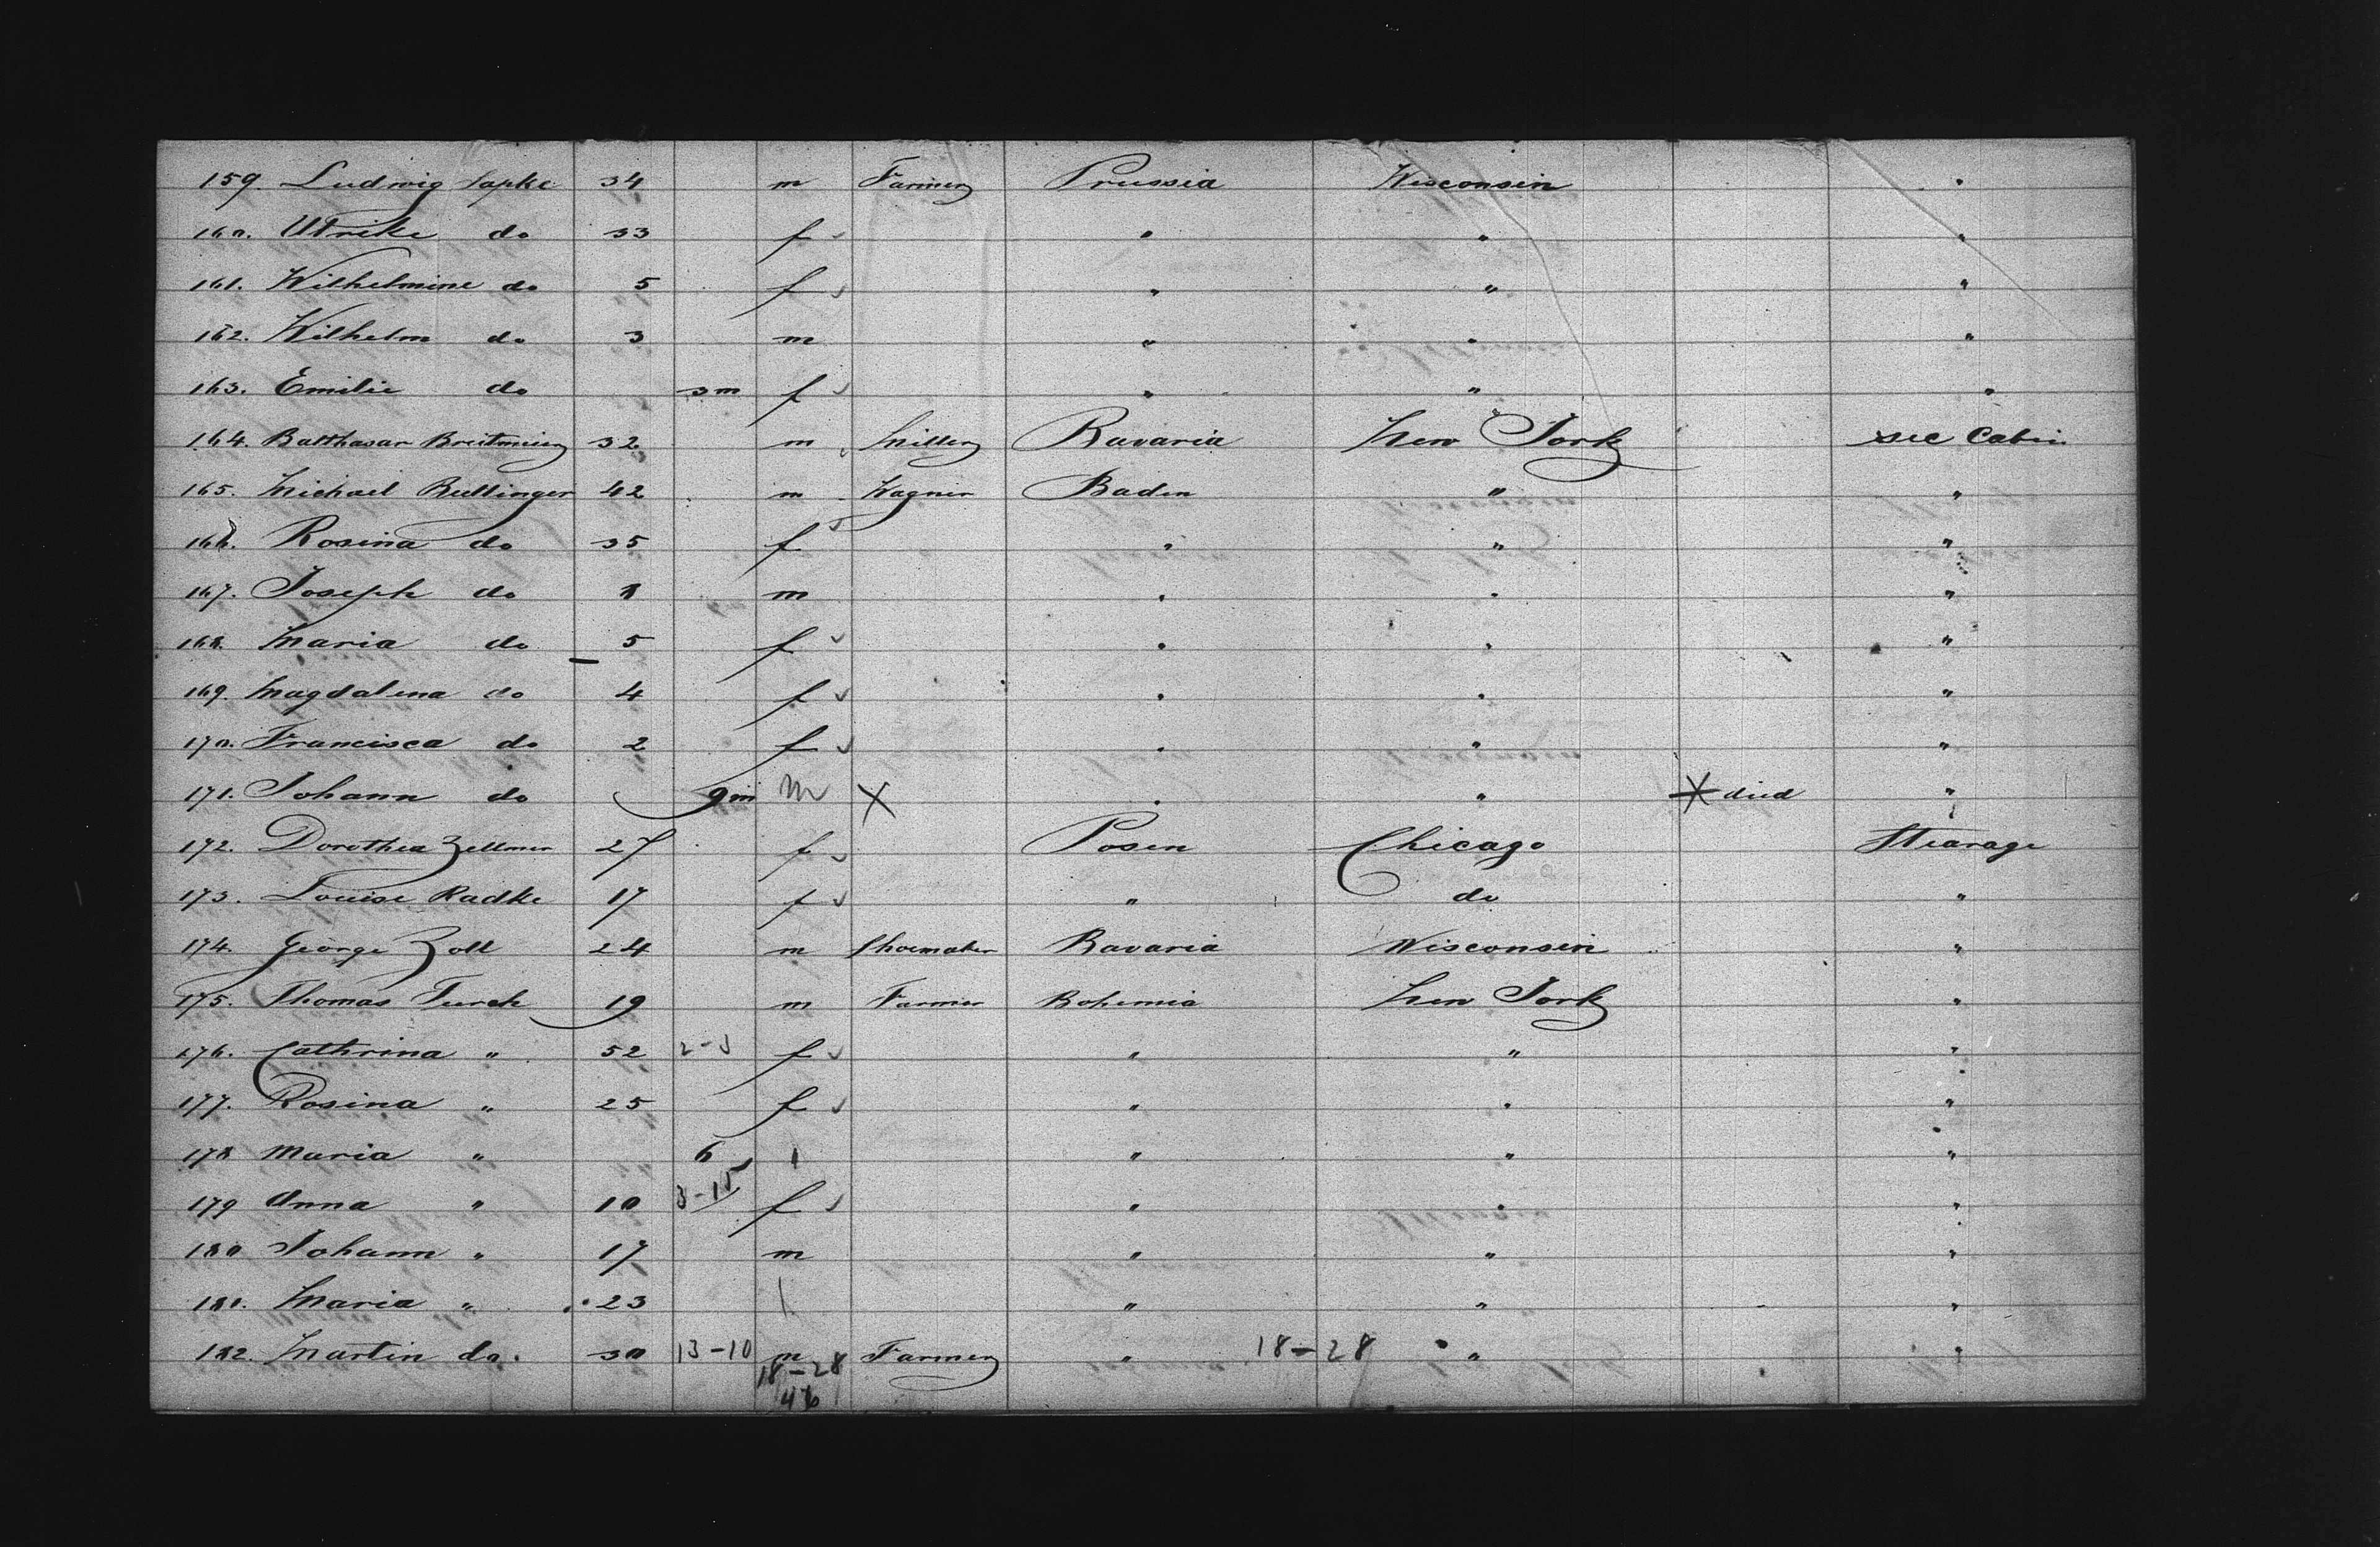 159. Ludwig Papke 34 m Farmer Prussia Wisconsin "
160. Ulrike do 33 f " " "
161. Wilhelmine do 5 f " " "
162. Wilhelm do 3 m " " "
163. Emilie do 3m f " " "
164. Balthasar Breitmeier 32 m Miller Bavaria New York sec Cabin
165. Michael Bullinger 42 m Wagner Baden " "
166. Rosina do 35 f " " "
167. Joseph do 8 m " " "
168. Maria do 5 f " " "
169. Magdalena do 4 f " " "
170. Francisca do 2 f " " "
171. Johann do 9m m X " " X died "
172. Dorothea Zellmer 27 f Posen Chicago Stearage
173. Louise Radke 17 f " do "
174. George Zoll 24 m Shoemaker Bavaria Wisconsin "
175. Thomas Turek 19 m Farmer Bohemia New York "
176. Cathrina " 52 f " " "
177. Rosina " 25 f " " "
178 Maria " 6 1 " " "
179 Anna " 10 3-15 f " " "
180 Johann " 17 m " " "
181. Maria " 23 1 " " "
182. Martin do. 30 13-10 m Farmer " 18-28 " "
18-28
46